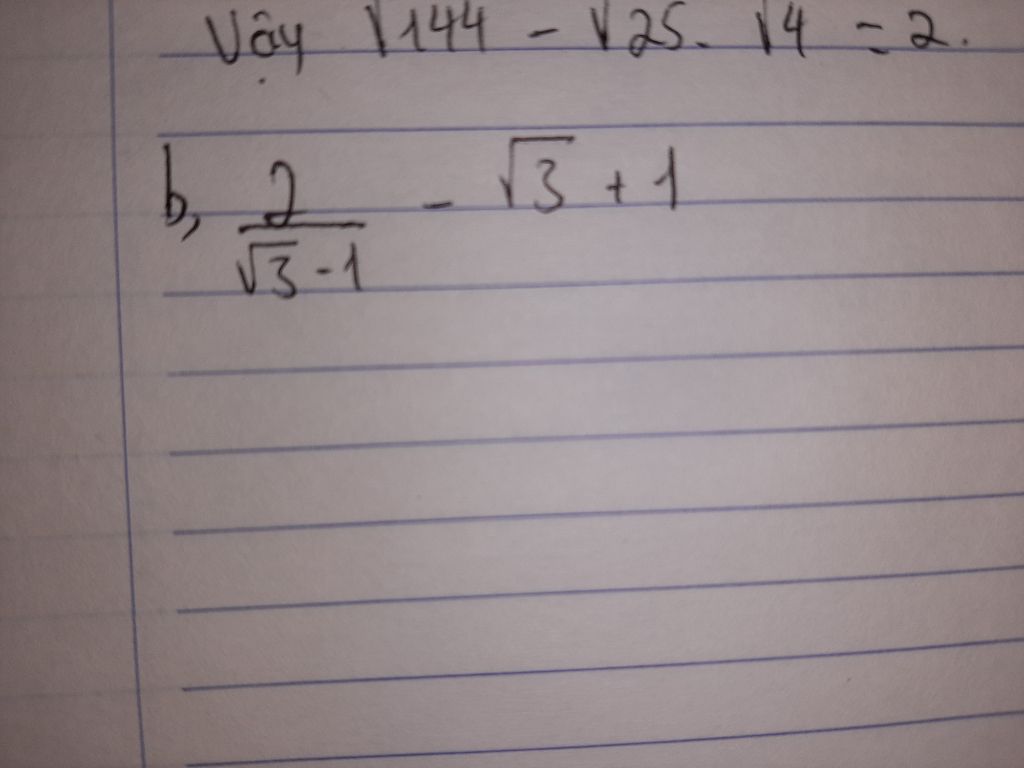 Vậy √144 - √25. √4 = 2.
b, 2/(√3 - 1) - √3 + 1